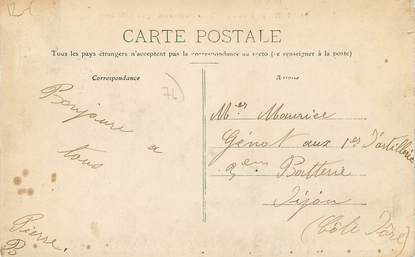 CARTE POSTALE
Tous les pays étrangers n'acceptent pas la correspondance au recto (se renseigner à la poste)
Correspondance
Adresse
76
Bonjoure a
tous
Pierre
B
Mer Maurice
Génot aux 1er d'artillerie
Batterie
Dijon
(Côte d'ore)